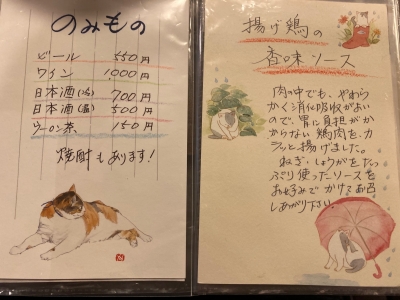 のみもの
ビール 550円
ワイン 1,000円
日本酒(冷) 700円
日本酒(温) 500円
ウーロン茶 150円
焼酎もあります!
揚げ鶏の
香味ソース
肉の中でも、やわら
かく消化吸収がよい
ので、胃に負担がか
からない鶏肉を、カ
ラッと揚げました。
ねぎ・しょうがをたっ
ぷり使ったソースを
お好みでかけてお召
しあがり下さい。